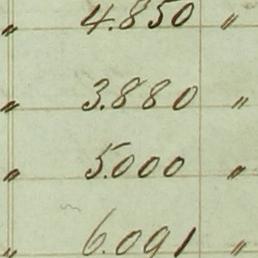 " 4.850 "
" 3.880 "
" 5.000 "
" 6.091 "